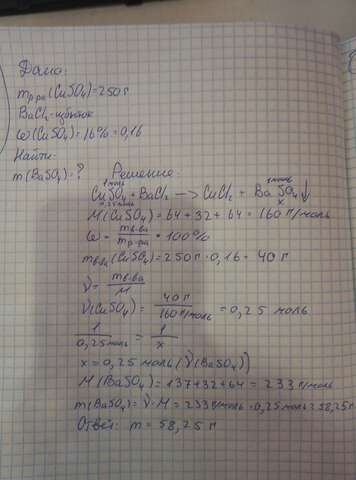 Дано:
m р-ра (CuSO₄)=250г
BaCl₂-избыток
ω(CuSO₄)=16%=0,16
Найти:
m(BaSO₄)-?
Решение:
1моль 1моль
CuSO₄ + BaCl₂ → CuCl₂ + BaSO₄↓
0,25моль x
M(CuSO₄)=64+32+64=160 г/моль
ω= m в-ва / m р-ра * 100%
m в-ва (CuSO₄)=250г·0,16=40г
ν= m в-ва / M
ν(CuSO₄)= 40г / 160г/моль =0,25 моль
1 / 0,25моль = 1 / x
x=0,25 моль (ν(BaSO₄))
M(BaSO₄)=137+32+64=233 г/моль
m(BaSO₄)=ν·M=233г/моль·0,25моль=58,25г
Ответ: m=58,25г